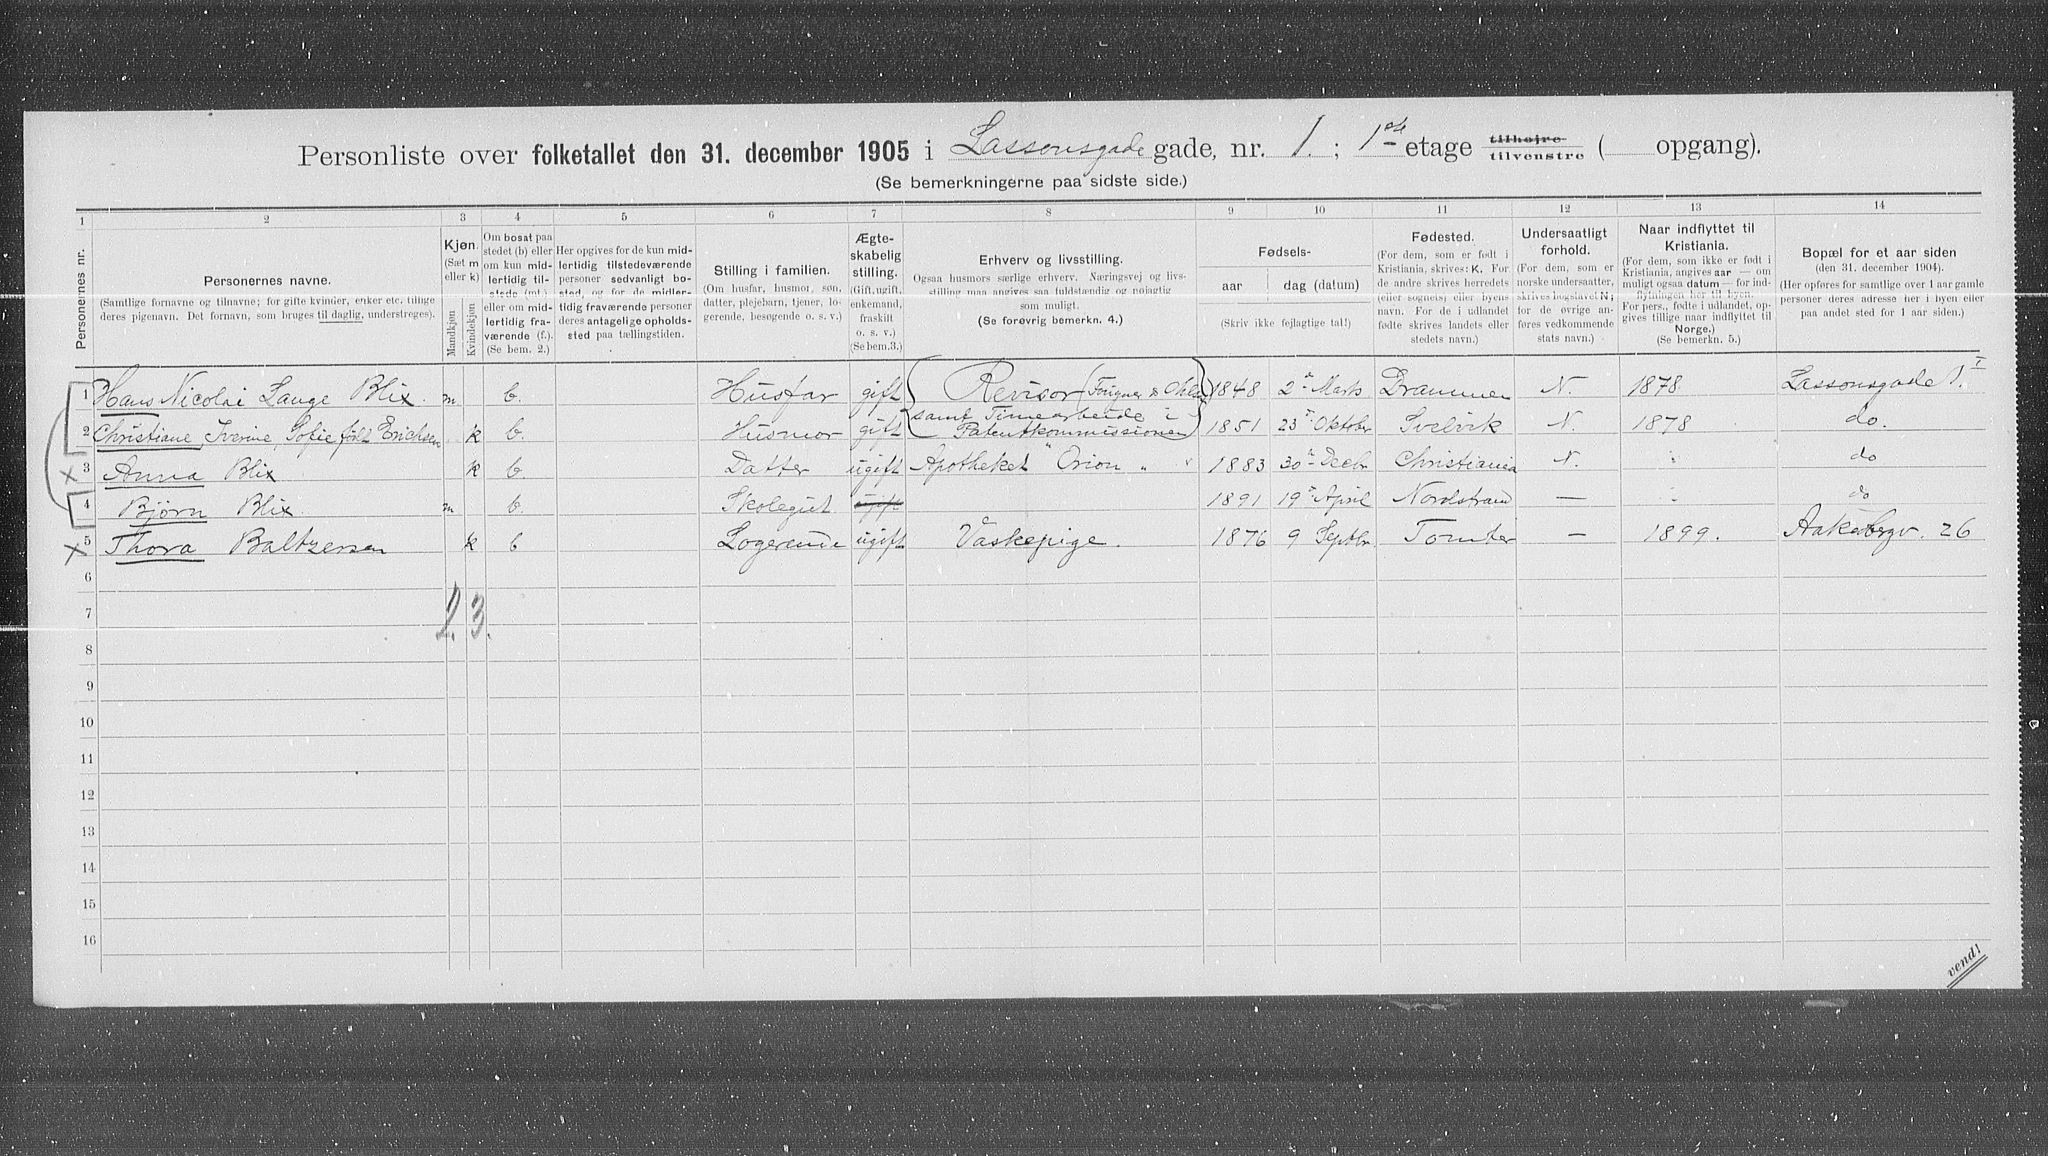 Personliste over folketallet den 31. december 1905 i Lassonsgade gade, nr. 1. ; 1ste etage tilhøjre tilvenstre ( opgang).
(Se bemerkningerne paa sidste side.)
1 2 3 4 5 6 7 8 9 10 11 12 13 14
Personernes nr.
Personernes navne.
(Samtlige fornavne og tilnavne; for gifte kvinder, enker etc. tillige deres pigenavn. Det fornavn, som bruges til daglig, understreges).
Kjøn.
(Sæt m eller k)
Mandkjøn
Kvindekjøn
Om bosat paa stedet (b) eller om kun midlertidig tilstede (mt) eller om midlertidig fraværende (f.). (Se bem. 2.)
Her opgives for de kun midlertidig tilstedeværende personer sedvanligt bosted, og for de midlertidig fraværende personer deres antagelige opholdssted paa tællingstiden.
Stilling i familien.
(Om husfar, husmor, søn, datter, plejebarn, tjener, logerende, besøgende o. s. v.)
Ægteskabelig stilling.
(Gift, ugift, enkemand, fraskilt o. s. v.)
(Se bem.3.)
Erhverv og livsstilling.
Ogsaa husmors særlige erhverv. Næringsvej og livsstilling maa angives saa fuldstændig og nøjagtig som muligt.
(Se forøvrig bemerkn. 4.)
Fødsels-
aar dag (datum)
(Skriv ikke fejlagtige tal!)
Fødested.
(For dem, som er født i Kristiania, skrives: K. For de andre skrives herredets (eller sognets) eller byens navn. For de i udlandet fødte skrives landets eller stedets navn.)
Undersaatligt forhold.
(For dem, som er norske undersaatter, skrives bogstavet N; for de øvrige anføres vedkommende stats navn.)
Naar indflyttet til Kristiania.
(For dem, som ikke er født i Kristiania, angives aar — om muligt ogsaa datum — for indflytningen her til byen. For pers., fødte i udlandet, opgives tillige naar indflyttet til Norge.)
(Se bemerkn. 5.)
Bopæl for et aar siden
(den 31. december 1904).
(Her opføres for samtlige over 1 aar gamle personer deres adresse her i byen eller paa andet sted for 1 aar siden.)
1 Hans Nicolai Lange Blix. m b. Husfar gift Revisor 1848 2 Marts Drammen N. 1878 Lassonsgade 1. I
2 Christiane Iverine Sofie født Erichsen k b. Husmor gift samt Timearbeide i Patentkommissionen 1851 23 Oktober Svelvik N. 1878 do.
3 Anna Blix k b. Datter ugift Apotheket "Orion" 1883 30 Decbr Christiania N. do
4 Bjørn Blix m b. Skolegut ugift 1891 19 April Nordstrand — do
5 Thora Baltzersen k b Logerende ugift Vaskepige. 1876 9 Septbr. Tomter — 1899. Aakebergv. 26
6
7 2. 3.
8
9
10
11
12
13
14
15
16
vend!